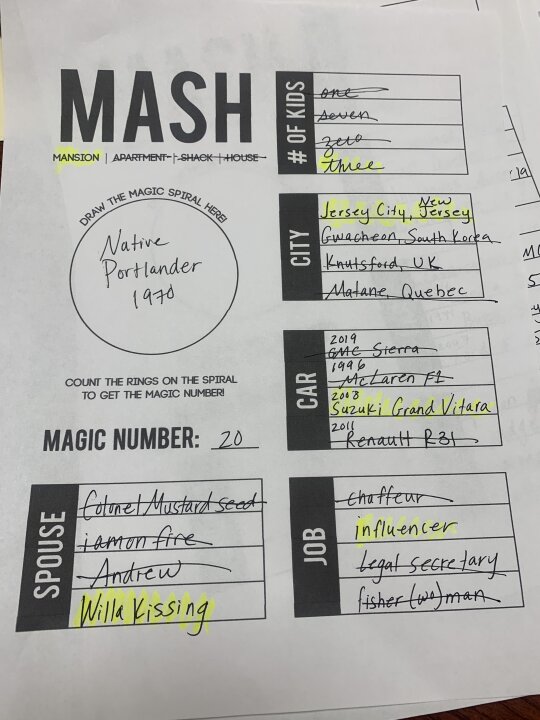 MASH
MANSION | APARTMENT | SHACK | HOUSE
DRAW THE MAGIC SPIRAL HERE!
Native
Portlander
1970
COUNT THE RINGS ON THE SPIRAL
TO GET THE MAGIC NUMBER!
MAGIC NUMBER: 20
SPOUSE
Colonel Mustard seed
iamon fire
Andrew
Willa Kissing
# OF KIDS
one
seven
zero
three
CITY
Jersey City, New Jersey
Gwacheon, South Korea
Knutsford, UK
Matane, Quebec
CAR
2019
GMC Sierra
1996
McLaren F1
2003
Suzuki Grand Vitara
2011
Renault R31
JOB
chaffeur
influencer
legal secretary
fisher (wo)man